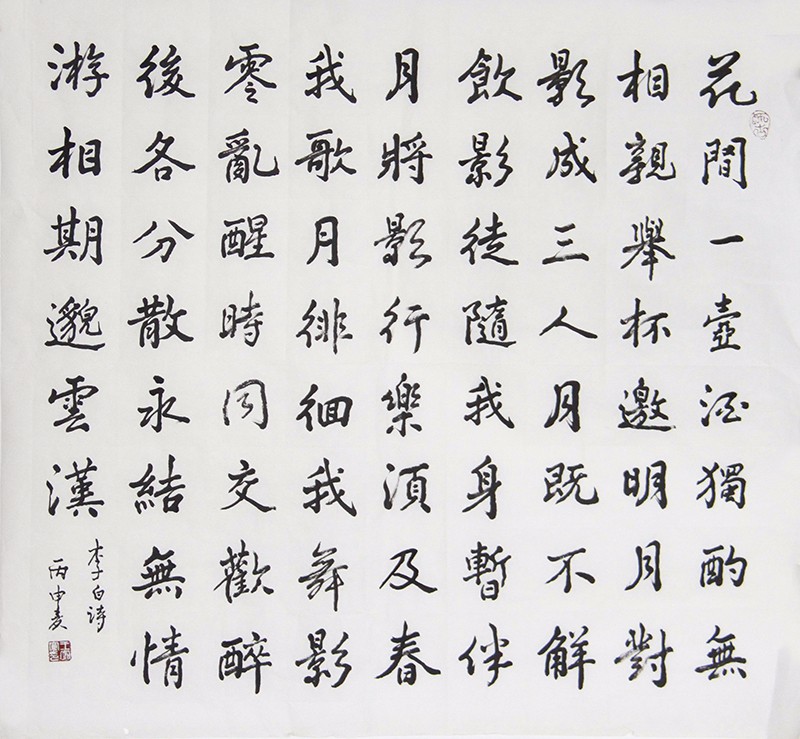 花間一壺酒獨酌無
相親舉杯邀明月對
影成三人月既不解
飲影徒隨我身暫伴
月將影行樂須及春
我歌月徘徊我舞影
零亂醒時同交歡醉
後各分散永結無情
游相期邈雲漢
李白詩
丙申夏